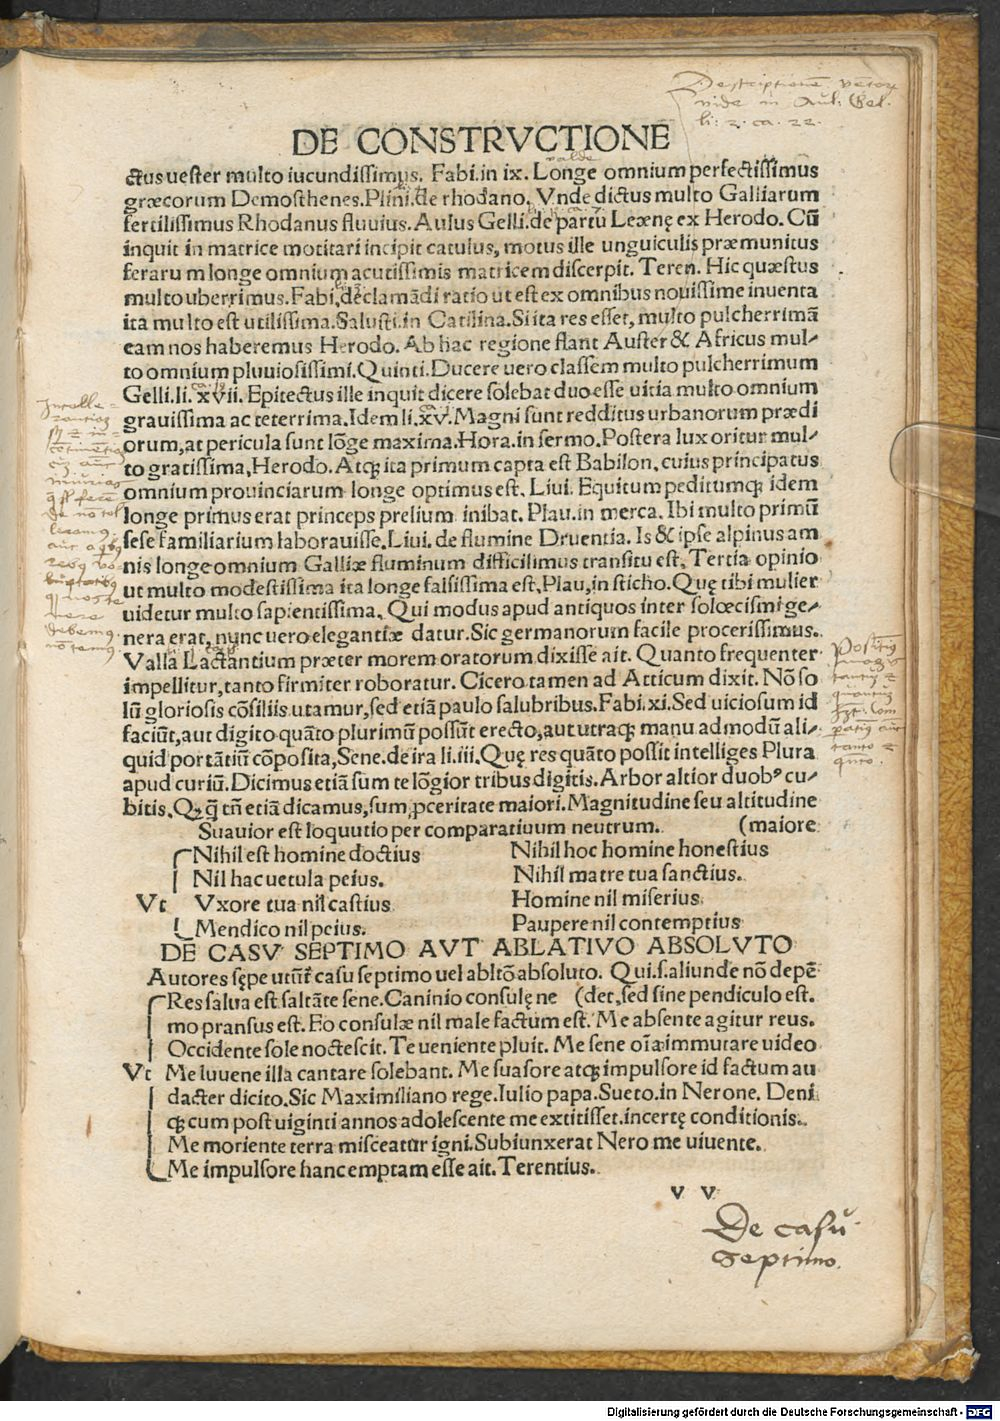 Descriptionē ventor
vide in Aul: Gel.
li: 2. ca. 22.
DE CONSTRVCTIONE
ctus uester multo iucundissimus. Fabi. in ix. Longe omnium perfectissimus
valde
græcorum Demosthenes. Plini. de rhodano. Vnde dictus multo Galliarum
fertilissimus Rhodanus fluuius. Aulus Gelli. de partu Leænę ex Herodo. Cū
inquit in matrice motitari incipit catulus, motus ille unguiculis præmunitus
feraru m longe omnium acutissimis matricem discerpit. Teren. Hic quæstus
multo uberrimus. Fabi, declamādi ratio ut est ex omnibus nouissime inuenta
ita multo est utilissima. Salusti. in Catilina. Si ita res esset, multo pulcherrimā
eam nos haberemus Herodo. Ab hac regione flant Auster & Africus mul-
to omnium pluuiosissimi. Quinti. Ducere uero classem multo pulcherrimum
Gelli. li. xvii. Epitectus ille inquit dicere solebat duo esse uitia multo omnium
grauissima ac teterrima. Idem li. xv. Magni sunt redditus urbanorum prædi
orum, at pericula sunt lōge maxima. Hora. in sermo. Postera lux oritur mul-
to gratissima, Herodo. Atqꝫ ita primum capta est Babilon, cuius principatus
omnium prouinciarum longe optimus est. Liui. Equitum peditumqꝫ idem
longe primus erat princeps prelium inibat. Plau. in merca. Ibi multo primū
sese familiarium laborauisse. Liui. de flumine Druentia. Is & ipse alpinus am
nis longe omnium Galliæ fluminum difficilimus transitu est. Tertia opinio
ut multo modestissima ita longe falsissima est. Plau, in sticho. Quę tibi mulier
uidetur multo sapientissima. Qui modus apud antiquos inter solœcismi ge-
nera erat, nunc uero elegantiæ datur. Sic germanorum facile procerissimus.
Valla Lactantium præter morem oratorum dixisse ait. Quanto frequenter
impellitur, tanto firmiter roboratur. Cicero tamen ad Atticum dixit. Nō so
lū gloriosis cōsiliis utamur, sed etiā paulo salubribus. Fabi. xi. Sed uiciosum id
faciūt, aut digito quāto plurimū possūt erecto, aut utraqꝫ manu admodū ali
quid portātiū cōposita, Sene. de ira li. iii. Quę res quāto possit intelliges Plura
apud curiū. Dicimus etiā sum te lōgior tribus digitis. Arbor altior duobꝰ cu-
bitis. Qꝫ q̄ tn̄ etiā dicamus, sum ꝓceritate maiori. Magnitudine seu altitudine
Suauior est loquutio per comparatiuum neutrum. (maiore
Nihil est homine doctius Nihil hoc homine honestius
Nil hac uetula peius. Nihil matre tua sanctius.
Vt Vxore tua nil castius Homine nil miserius
Mendico nil peius. Paupere nil contemptius
DE CASV SEPTIMO AVT ABLATIVO ABSOLVTO
Autores sępe utūt̄ casu septimo uel abltō absoluto. Qui. s. aliunde nō depē
Res salua est saltāte sene. Caninio consulę ne (det, sed sine pendiculo est.
mo pransus est. Eo consulæ nil male factum est. Me absente agitur reus.
Occidente sole noctescit. Te ueniente pluit. Me sene oīa immutare uideo
Vt Me iuuene illa cantare solebant. Me suasore atqꝫ impulsore id factum au
dacter dicito. Sic Maximiliano rege. Iulio papa. Sueto. in Nerone. Deni
qꝫ cum post uiginti annos adolescente me extitisset. incertę conditionis.
Me moriente terra misceatur igni. Subiunxerat Nero me uiuente.
Me impulsore hanc emptam esse ait. Terentius.
v v
De casu
septimo.
Digitalisierung gefördert durch die Deutsche Forschungsgemeinschaft - DFG